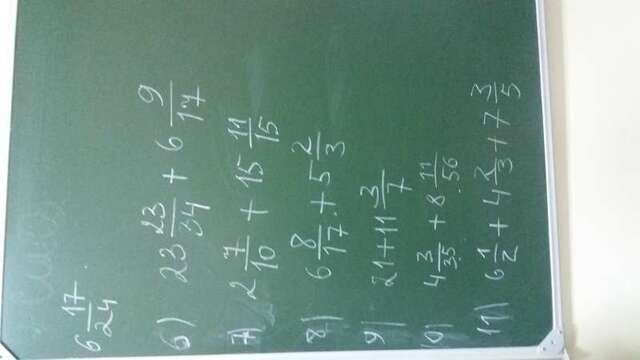 6 17/24
6) 23 23/34 + 6 9/17
7) 2 7/10 + 15 11/15
8) 6 8/17 + 5 2/3
9) 21 + 11 3/7
10) 4 3/35 + 8 11/56
11) 6 1/2 + 4 2/3 + 7 3/5